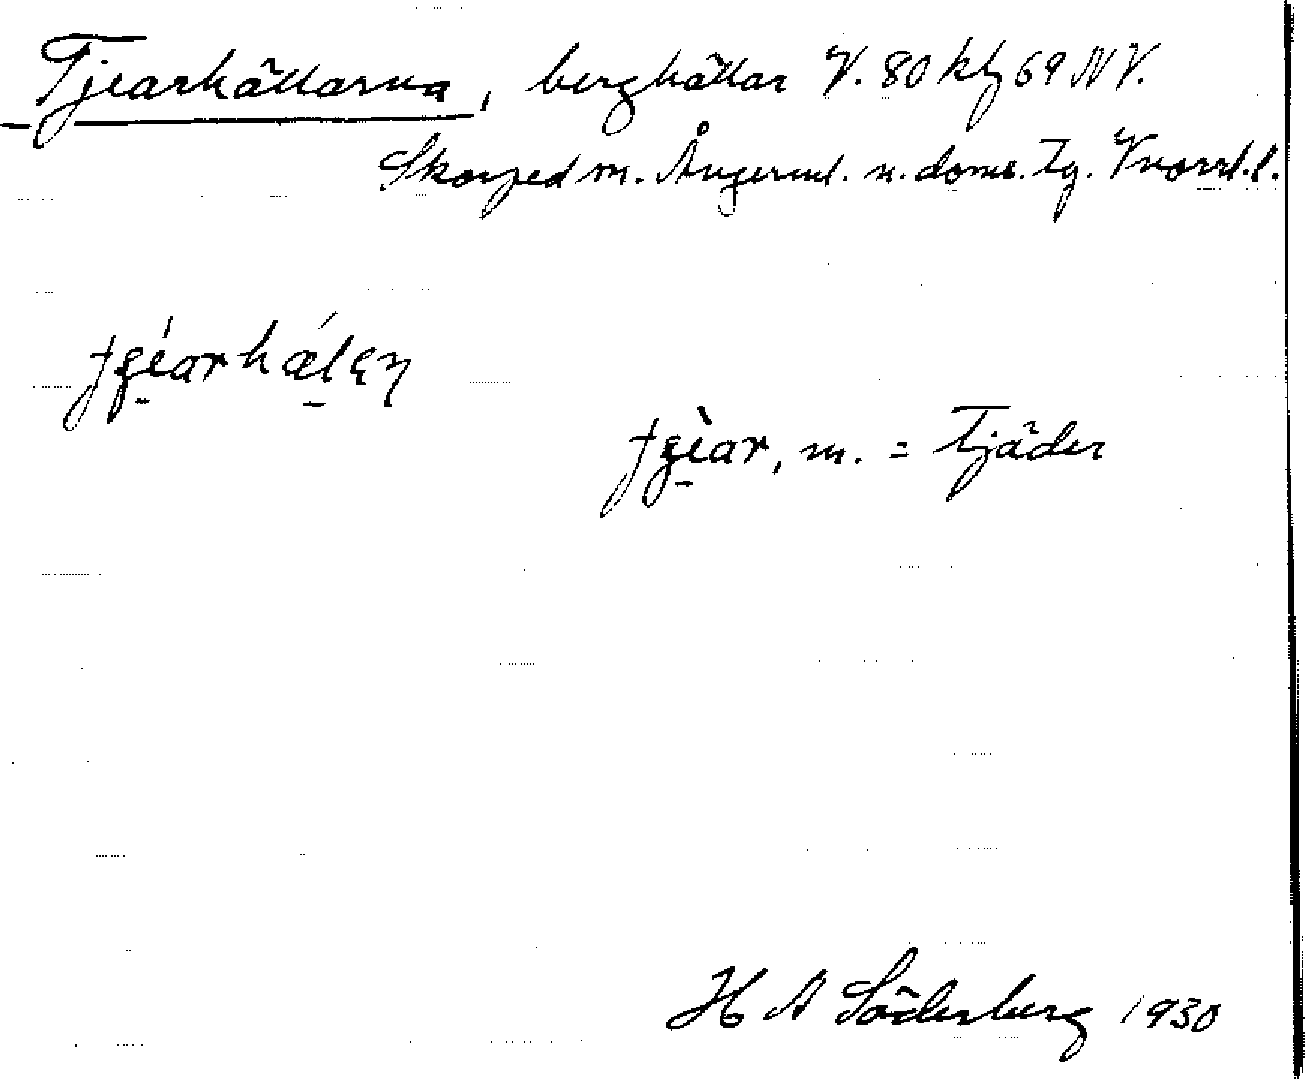 Tjearhällarna, berghällar V. 80 kbf 69 NV.
Skorped sn. Ångerml. n. doms. Tg. Vnorrl. l.
tje̱arhæ̱lɛɳ
tje̱àr, m. = Tjäder
H A Söderberg 1930